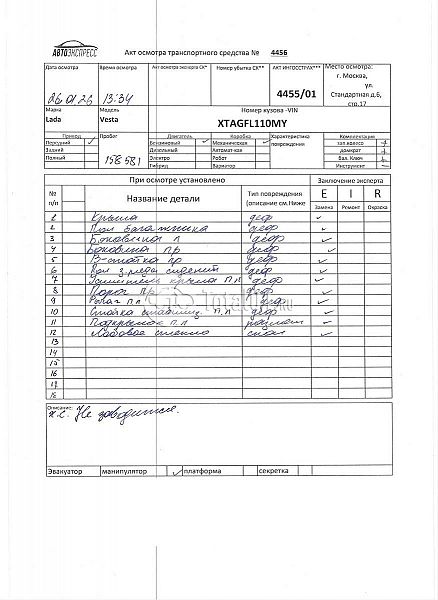 АВТОЭКСПРЕСС
Акт осмотра транспортного средства № 4456
Дата осмотра
Время осмотра
Акт осмотра эксперта СК*
Номер убытка СК**
АКТ ИНГОССТРАХ***
Место осмотра:
г. Москва,
ул.
Стандартная д.6,
стр.17
26.01.26
13:34
4455/01
Марка
Модель
Номер кузова -VIN
Lada
Vesta
XTAGFL110MY
Привод
Пробег
Двигатель
Коробка
Характеристика
повреждения
Комплектация
Передний
Бензиновый
Механическая
зап.колесо
Задний
Дизельный
Автомат-кая
домкрат
Полный
158 581
Электро
Робот
бал. Ключ
Гибрид
Вариатор
Инструмент
При осмотре установлено
Заключение эксперта
№
п/п
Название детали
Тип повреждения
(описание см.Ниже
E I R
Замена Ремонт Окраска
1 Крыша деф
2 Пол багажника деф
3 Боковина л деф
4 Боковина пр деф
5 В-стойка пр деф
6 Пол з.ряда сидений деф
7 Усилитель крыла п л деф
8 деф
9 деф
10 Стойка п л деф
11 Подкрылок п л
12 Лобовое стекло скол
13
14
15
16
17
18
Total01.RU
Описание:
х.с. Не заводится.
Эвакуатор манипулятор платформа секретка